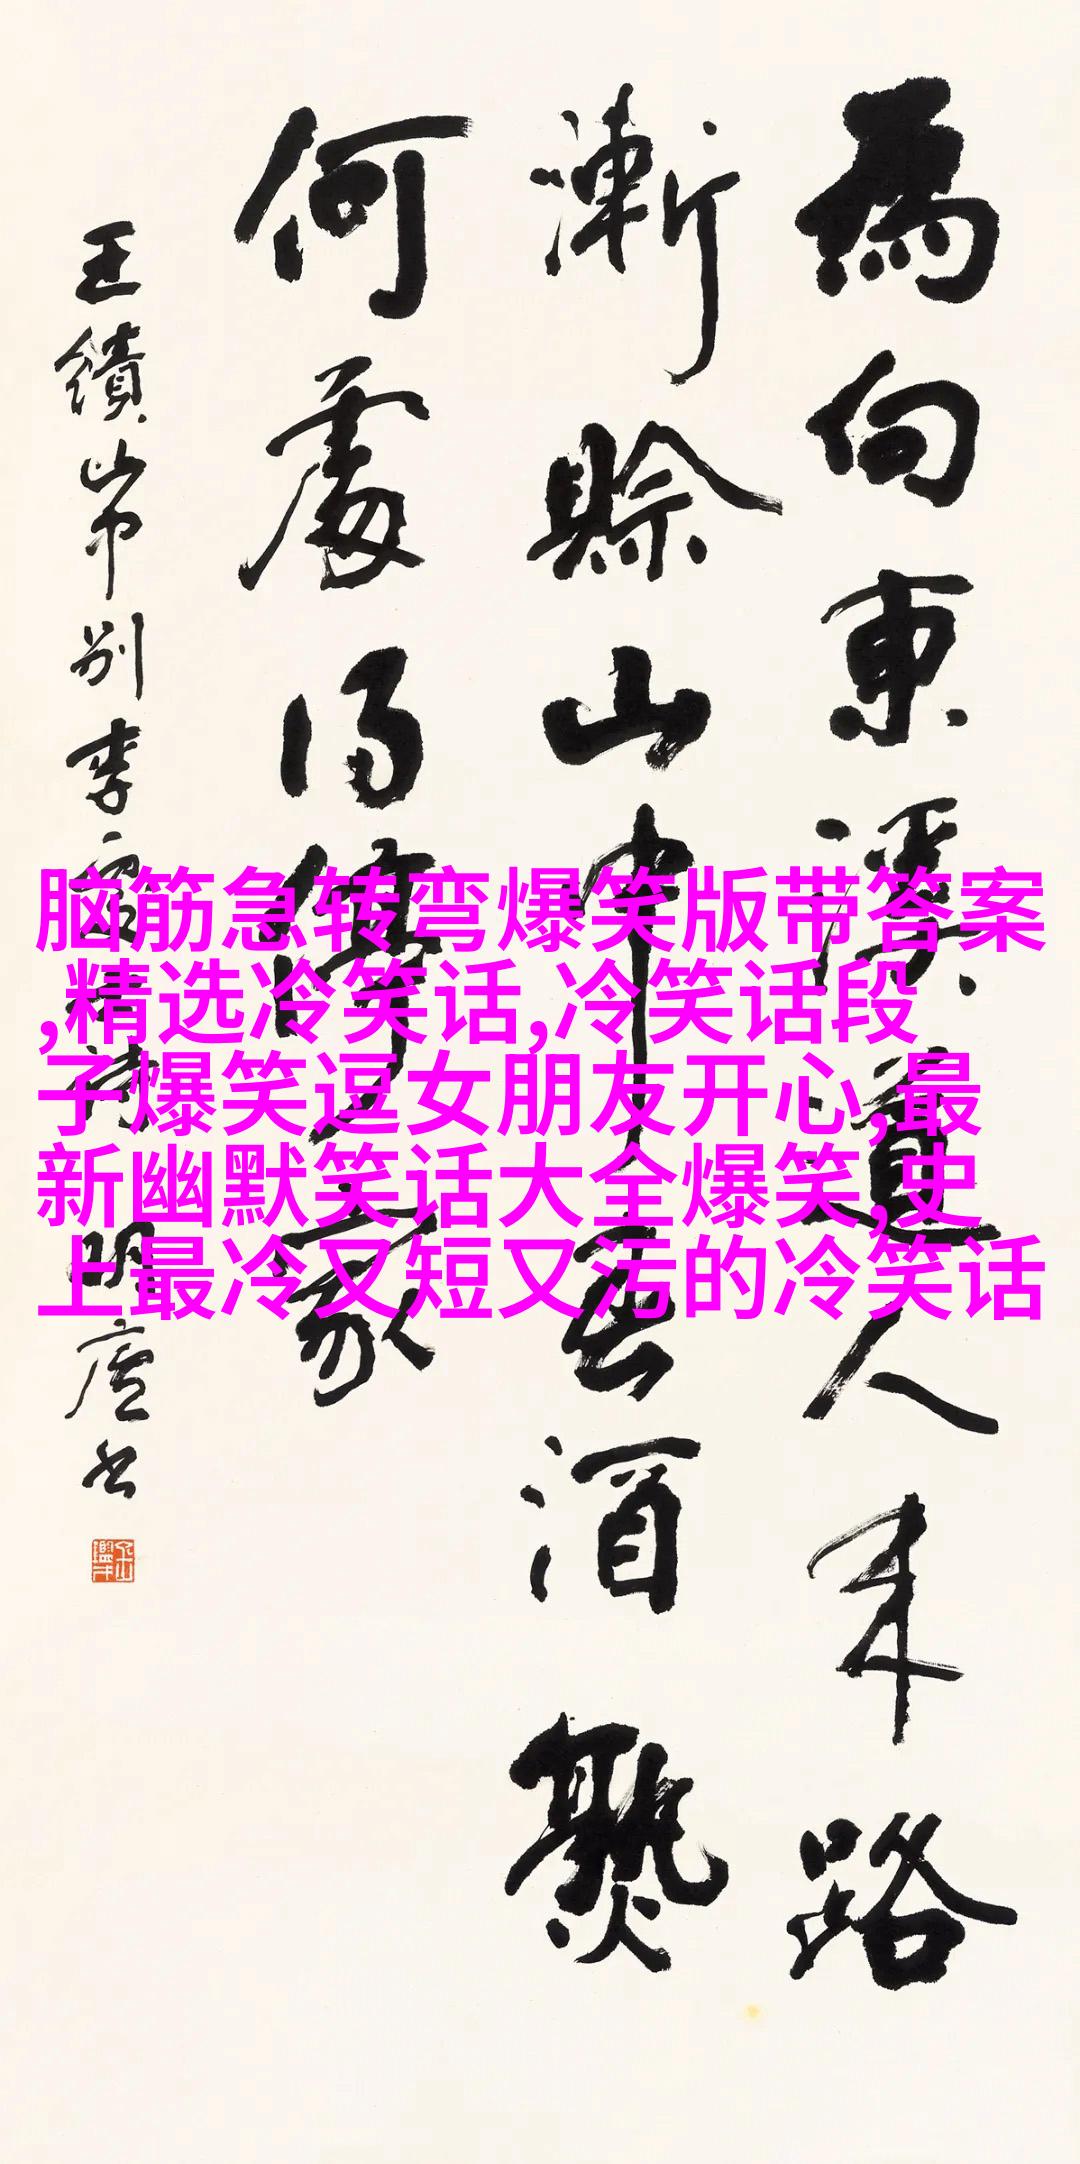 為向東溪道人来路
漸賒山中春酒熟
何處得停家
王績山中別李處士詩 明廬书
脑筋急转弯爆笑版带答案
,精选冷笑话,冷笑话段
子爆笑逗女朋友开心,最
新幽默笑话大全爆笑,史
上最冷又短又污的冷笑话